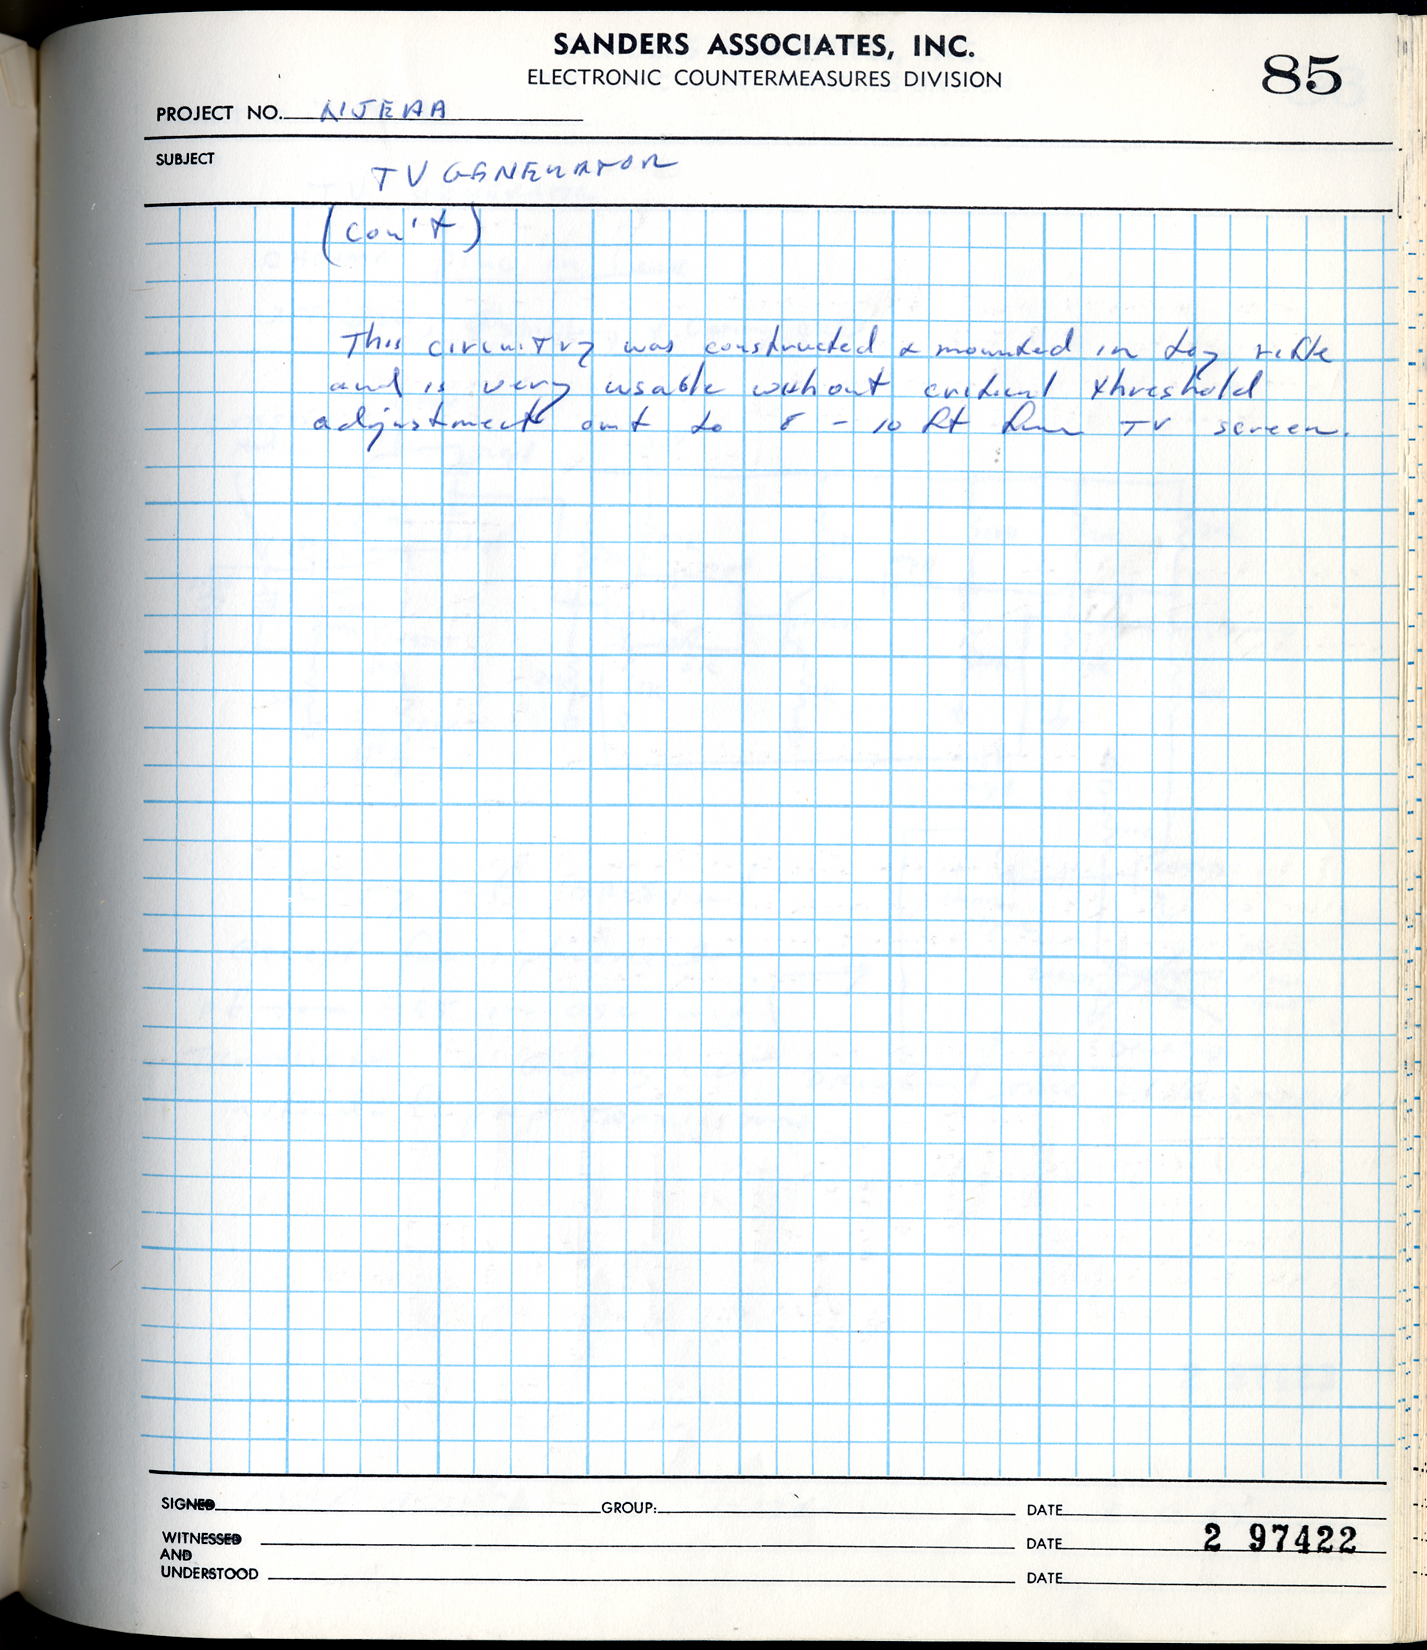 SANDERS ASSOCIATES, INC.
ELECTRONIC COUNTERMEASURES DIVISION
85
PROJECT NO.
SUBJECT TV GENERATOR
(con't)
This circuitry was constructed & mounted in toy rifle
and is very usable without critical threshold
adjustment out to 8 - 10 ft from TV screen.
SIGNED GROUP: DATE
WITNESSED DATE 2 97422
AND
UNDERSTOOD DATE